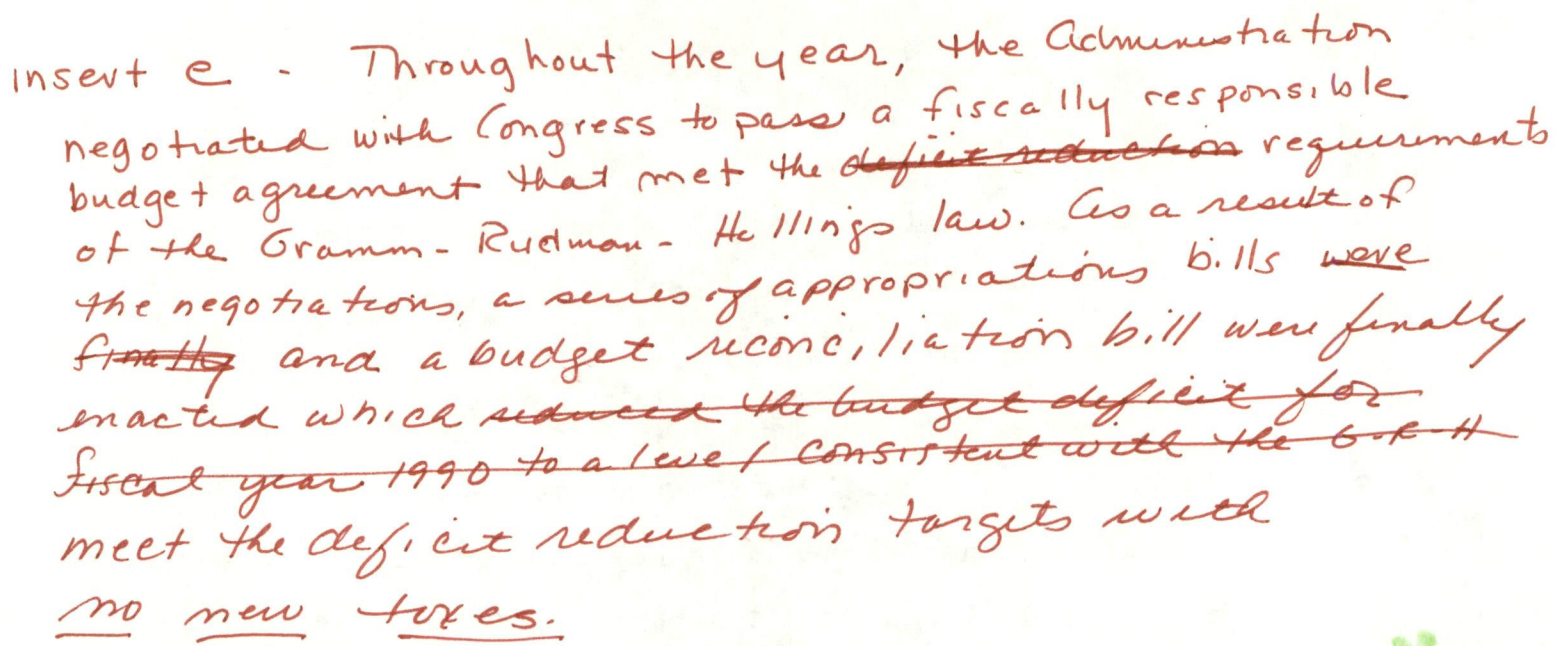 insert e - Throughout the year, the Administration
negotiated with Congress to pass a fiscally responsible
budget agreement that met the ~~deficit reduction~~ requirements
of the Gramm-Rudman-Hollings law. As a result of
the negotiations, a series of appropriations bills ~~were~~
~~finally~~ and a budget reconciliation bill were finally
enacted which ~~reduced the budget deficit for~~
~~fiscal year 1990 to a level consistent with the G-R-H~~
meet the deficit reduction targets with
no new taxes.